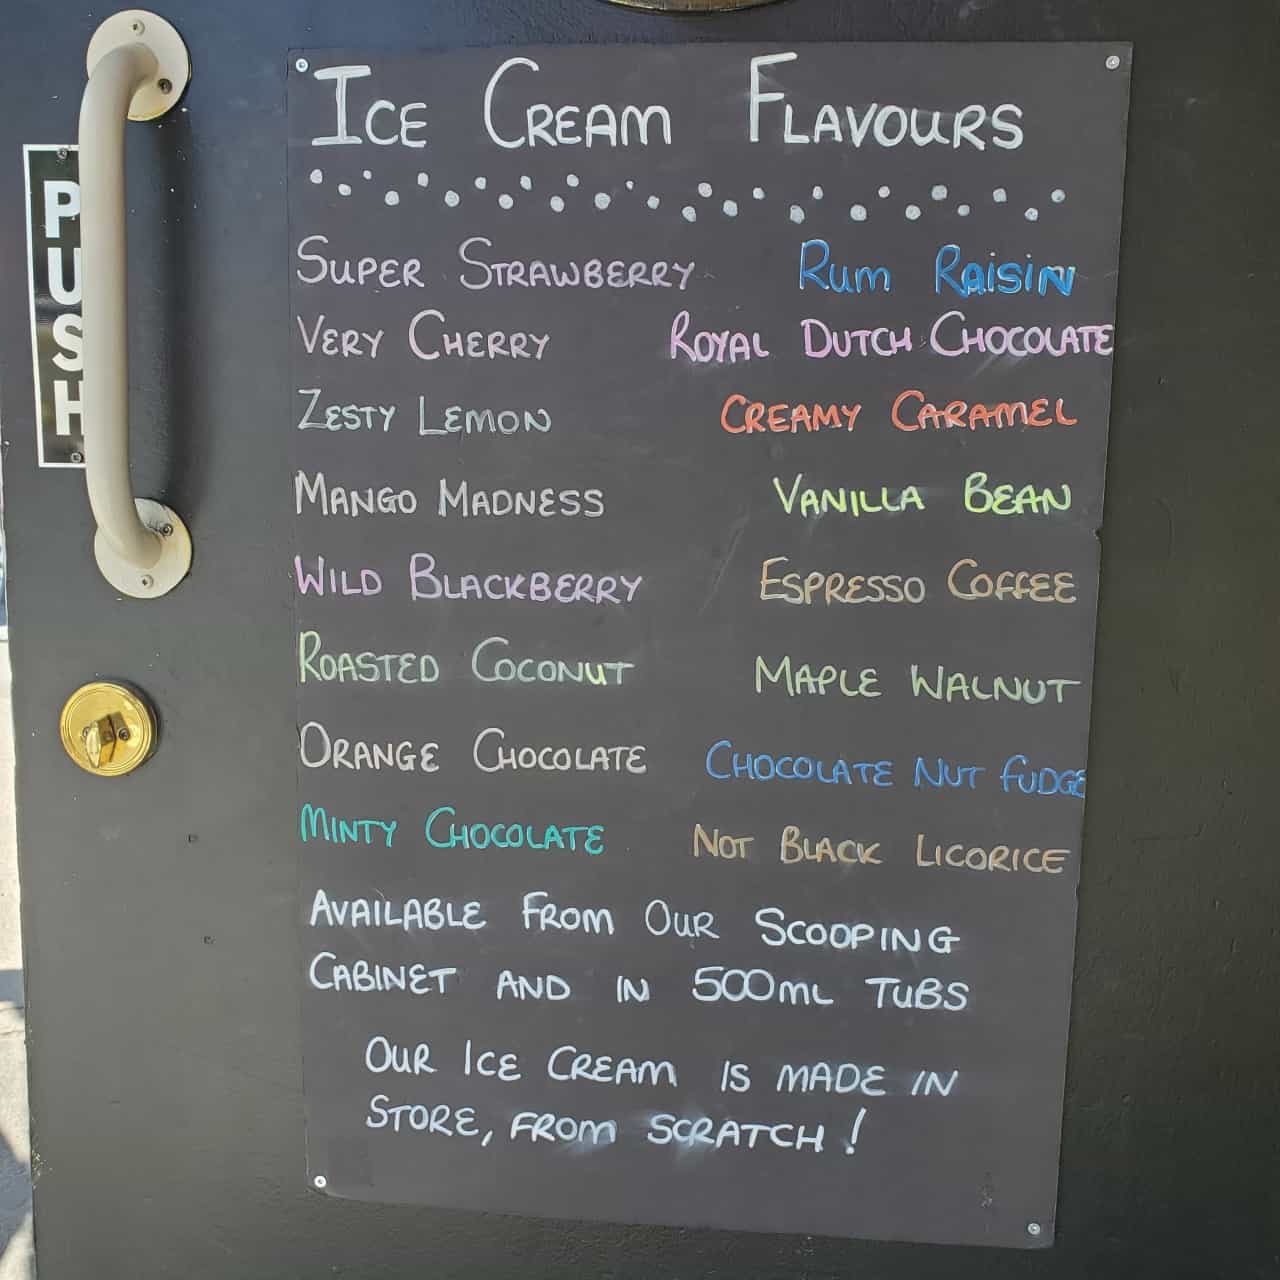 PUSH
ICE CREAM FLAVOURS
SUPER STRAWBERRY
VERY CHERRY
ZESTY LEMON
MANGO MADNESS
WILD BLACKBERRY
ROASTED COCONUT
ORANGE CHOCOLATE
MINTY CHOCOLATE
RUM RAISIN
ROYAL DUTCH CHOCOLATE
CREAMY CARAMEL
VANILLA BEAN
ESPRESSO COFFEE
MAPLE WALNUT
CHOCOLATE NUT FUDGE
NOT BLACK LICORICE
AVAILABLE FROM OUR SCOOPING
CABINET AND IN 500ML TUBS
OUR ICE CREAM IS MADE IN
STORE, FROM SCRATCH!